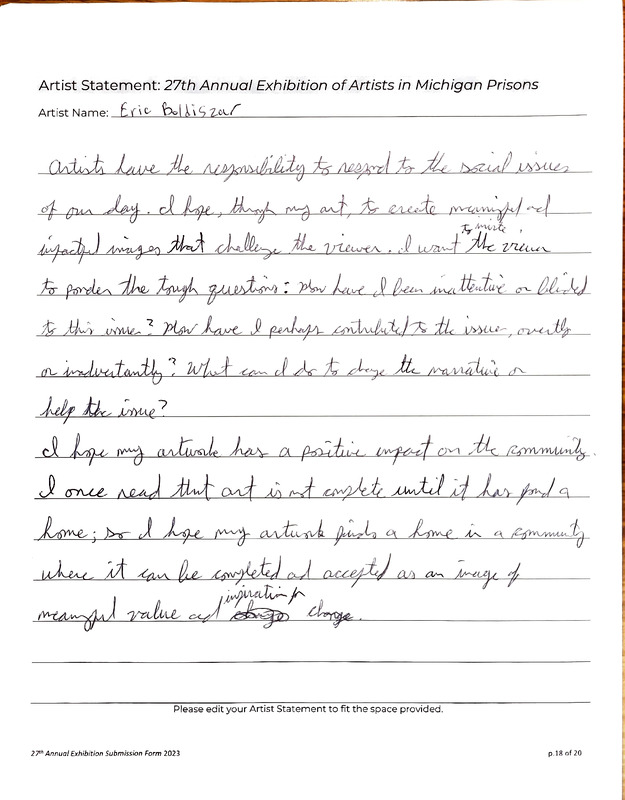 Artist Statement: 27th Annual Exhibition of Artists in Michigan Prisons
Artist Name: Eric Boldiszar
Artists have the responsibility to respond to the social issues
of our day. I hope, through my art, to create meaningful and
impactful images that challenge the viewer. I want the viewer
to ponder the tough questions: How have I been inattentive or blinded
to this issue? How have I perhaps contributed to the issue, overtly
or inadvertantly? What can I do to change the narrative or
help the issue?
I hope my artwork has a positive impact on the community.
I once read that art is not complete until it has found a
home; so I hope my artwork finds a home in a community
where it can be completed and accepted as an image of
inspiration for
meaningful value and change.
Please edit your Artist Statement to fit the space provided.
27th Annual Exhibition Submission Form 2023
p.18 of 20